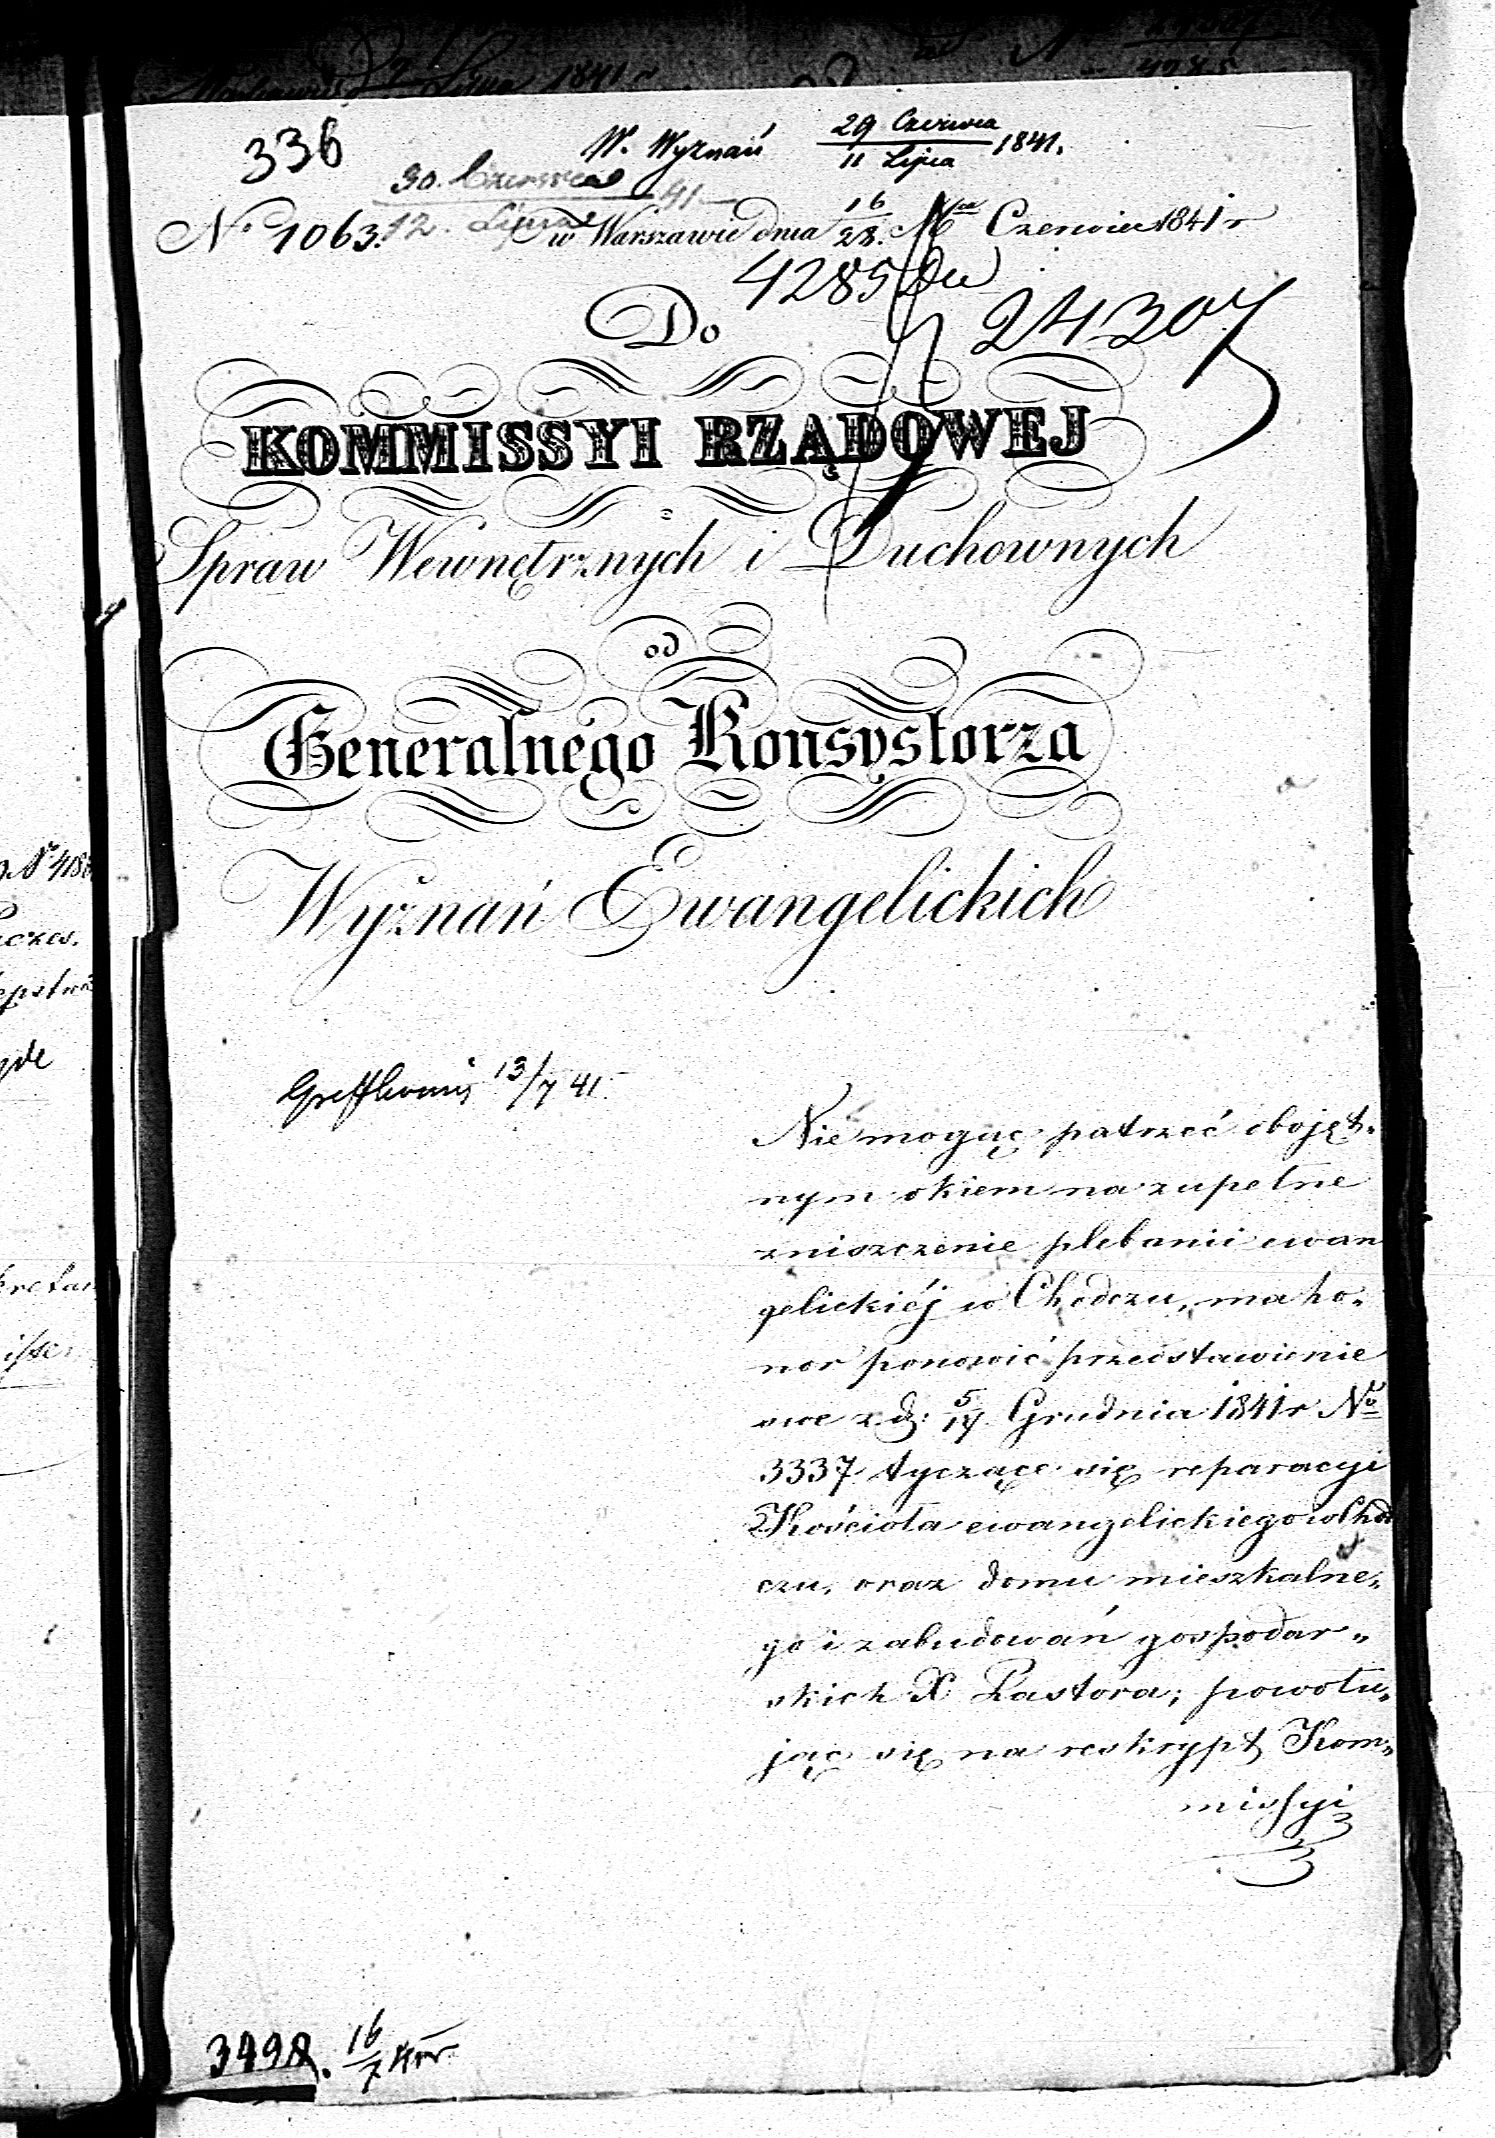 336
W. Wyznań 29 Czerwca / 11 Lipca 1841.
30. Czerwca / 12. Lipca 41
No 1063. w Warszawie dnia 16/28. Mca Czerwca 1841 r
4285
24307
Do
KOMMISSYI RZĄDOWEJ
Spraw Wewnętrznych i Duchownych
od
Generalnego Konsystorza
Wyznań Ewangelickich
13/7 41.
Nie mogąc patrzeć obojęt„
nym okiem na zupełne
zniszczenie plebanii ewan
gelickiéj w Chodczu, ma ho„
nor ponowić przedstawienie
swe z d: 5/17 Grudnia 1841 r No
3337 tyczące się reparacyi
Kościoła ewangelickiego w Chod
czu, oraz domu mieszkalne„
go i zabudowań gospodar„
skich X Pastora; powołu„
jąc się na reskrypt Kom„
missyi
3498. 16/7